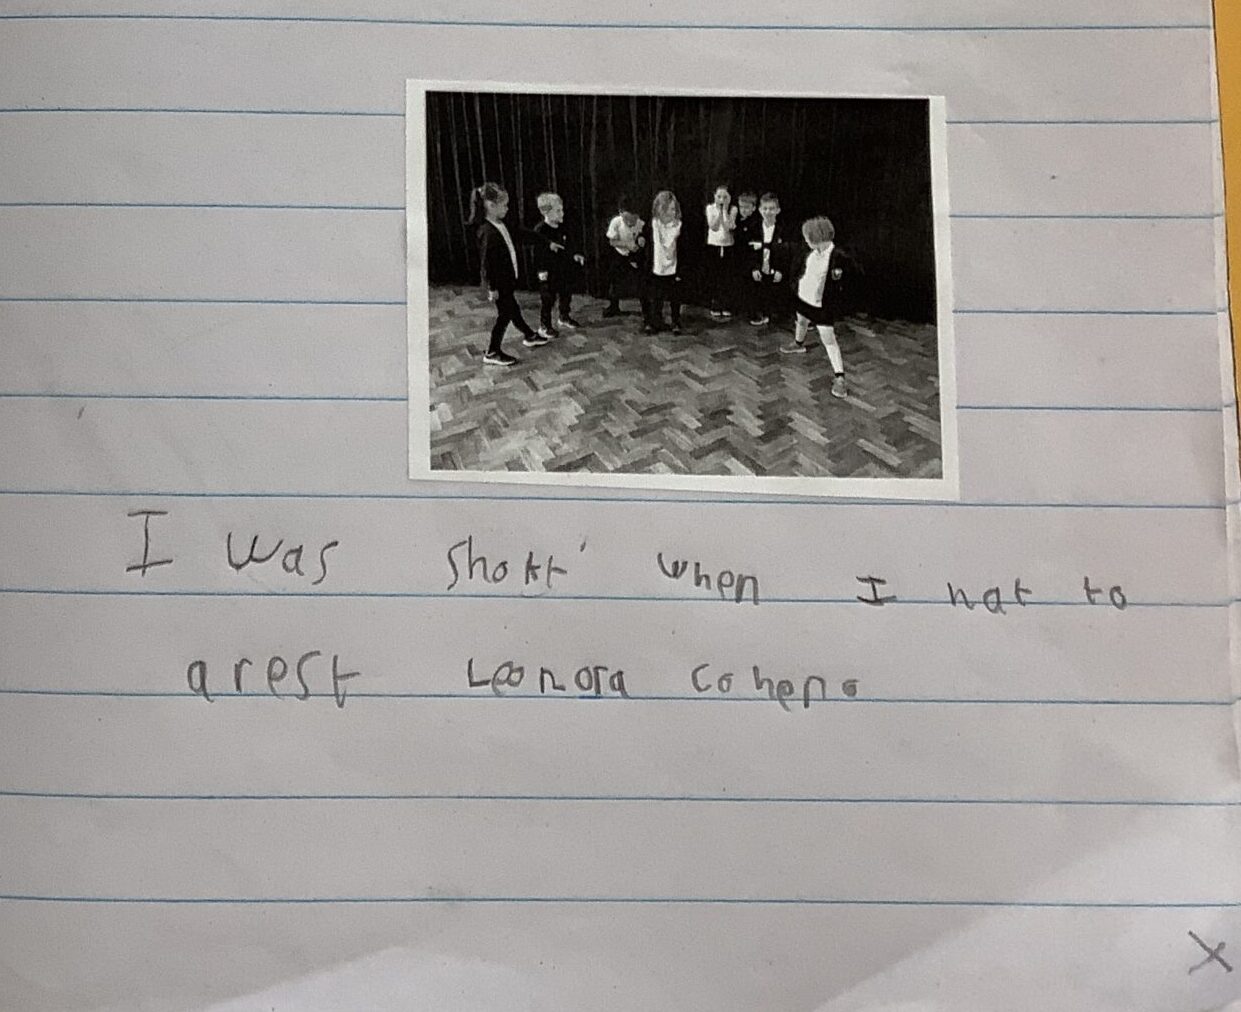 I was shokt when I hat to
arest Leonora Cohen.
x